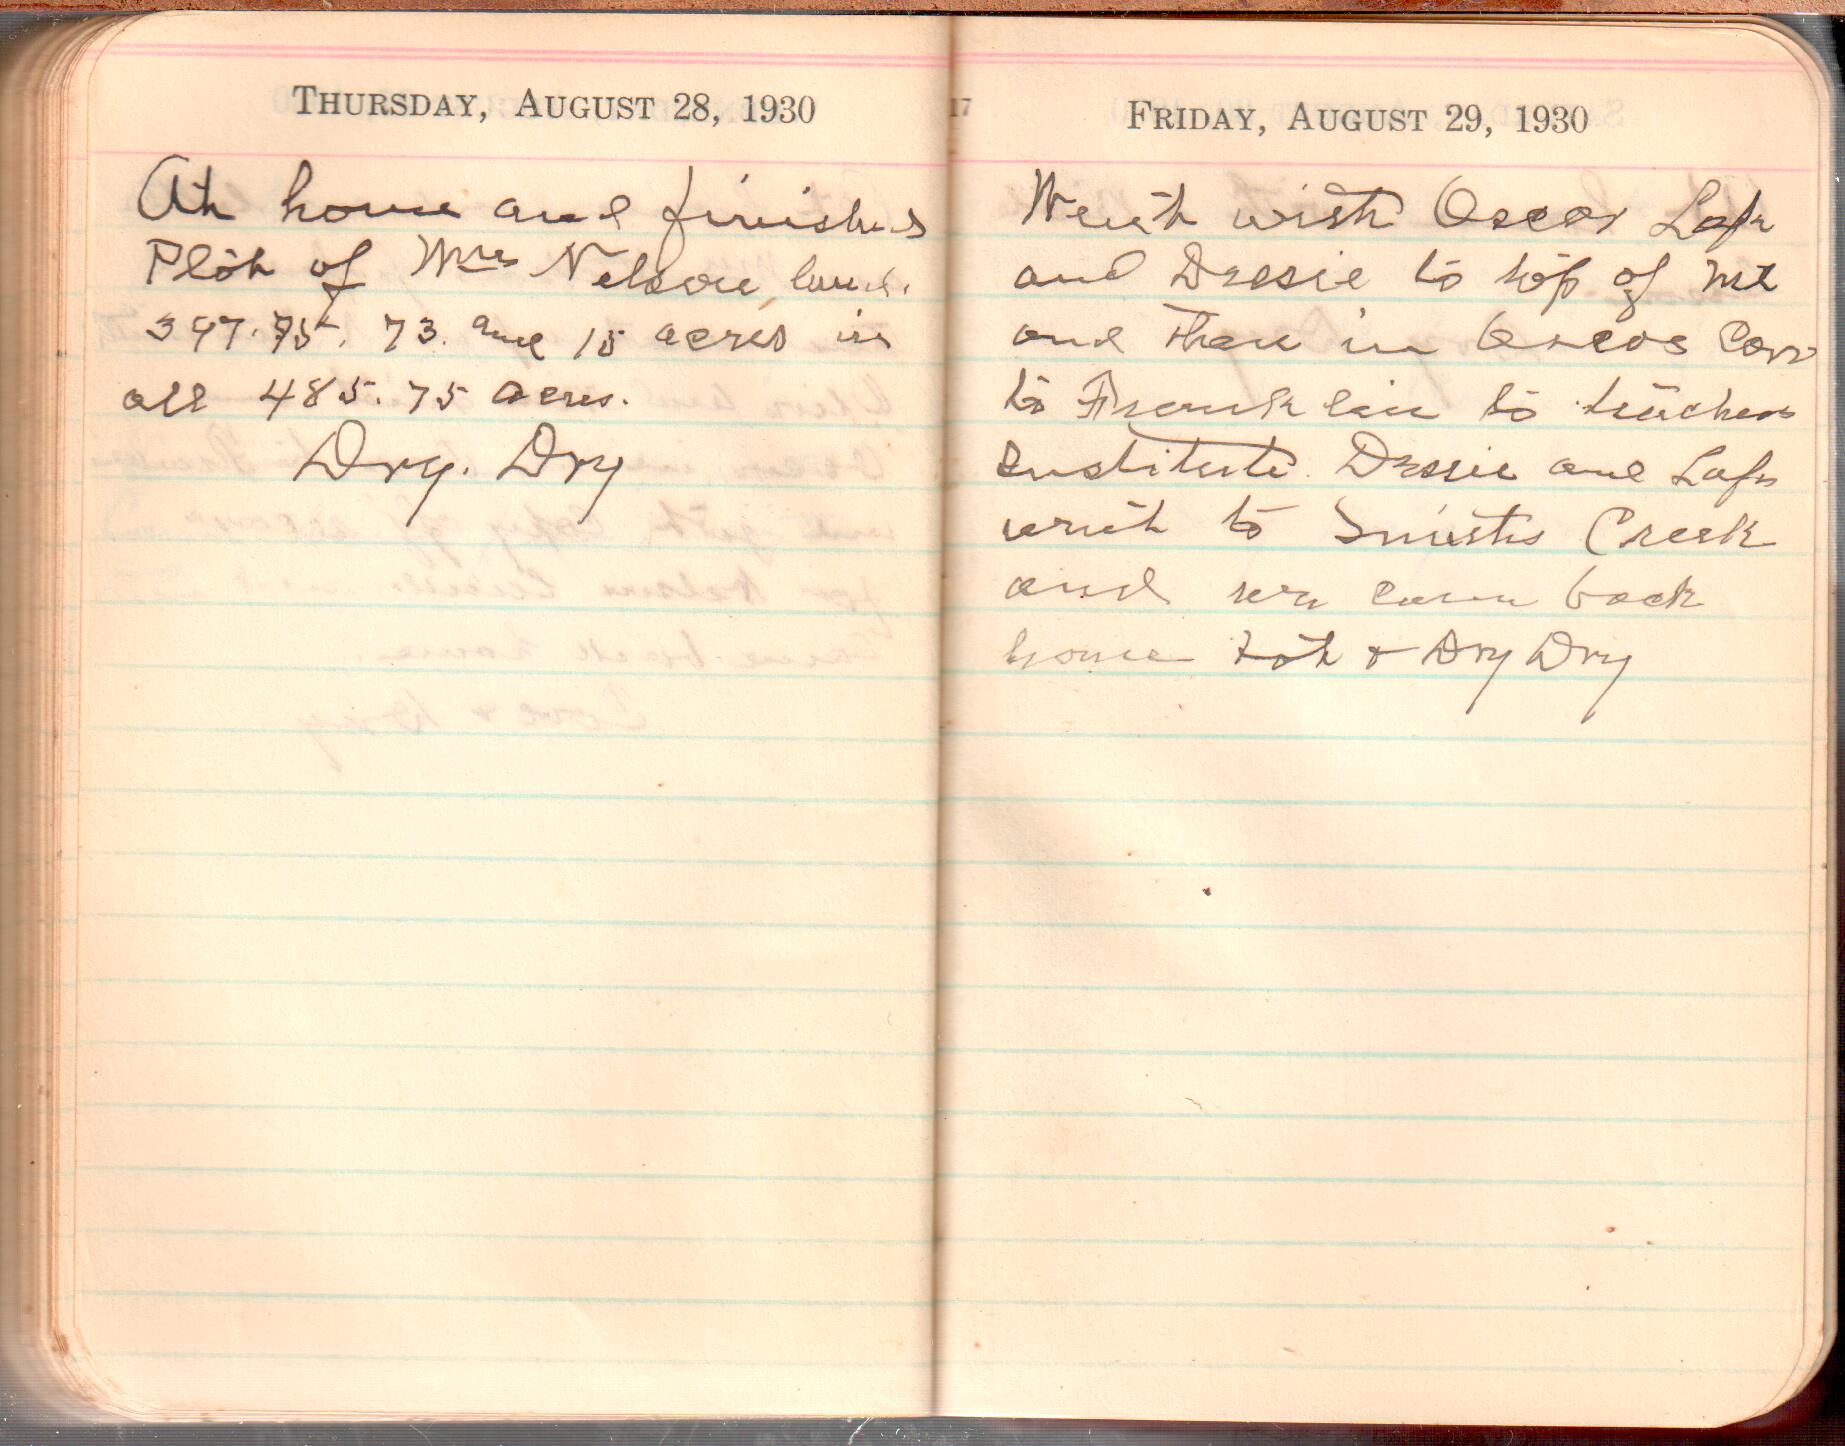 THURSDAY, AUGUST 28, 1930
At home and finished
Plot of Mrs Nelson land.
397.75. 73. and 15 acres in
all 485.75 acres.
Dry. Dry
17
FRIDAY, AUGUST 29, 1930
Went with Oscar Lafe
and Dessie to top of Mt
and then in Oscos Car
to Franklin to teachers
Institute. Dessie and Lafe
went to Smiths Creek
and we came back
home Hot & Dry Dry